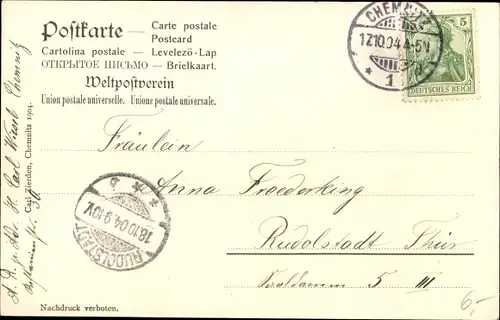 Postkarte — Carte postale
Postcard
Cartolina postale — Levelező-Lap
ОТКРЫТОЕ ПИСЬМО — Briefkaart.
Weltpostverein
Union postale universelle. Unione postale universale.
CHEMNITZ
17.10.04.4-5N
1
5
DEUTSCHES REICH
Fräulein
Anna Froederking
Rudolstadt Thür.
Saaldamm 5 III
RUDOLSTADT
18.10.04.9-10V.
Carl Wiesel Chemnitz
Carl Zierden, Chemnitz 1904.
Nachdruck verboten.
6,-